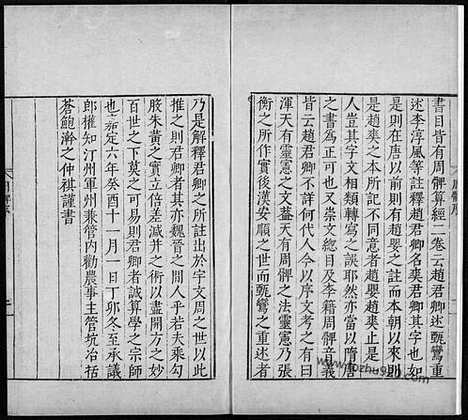 書目皆有周髀算經二卷云趙君卿述甄鸞重
述李淳風等註釋趙君卿名爽君卿其字也如
是則在唐以前則有趙嬰之註而本朝以來則
是趙爽之本所記不同意者趙嬰趙爽止是一
人豈其字文相類轉寫之誤耶然亦當以隋唐
之書爲正可也又崇文總目及李籍周髀音義
皆云趙君卿不詳何代人今以序文考之有曰
渾天有靈憲之文蓋天有周髀之法靈憲乃張
衡之所作實後漢安順之世而甄鸞之重述者
乃是解釋君卿之所註出於宇文周之世以此
推之則君卿者其亦魏晉之間人乎若夫乘勾
股朱黃之實立倍差減并之術以盡開方之妙
百世之下莫之可易則君卿者誠算學之宗師
也嘉定六年癸酉十一月一日丁卯冬至承議
郎權知汀州軍州兼管內勸農事主管坑冶括
蒼鮑澣之仲祺謹書